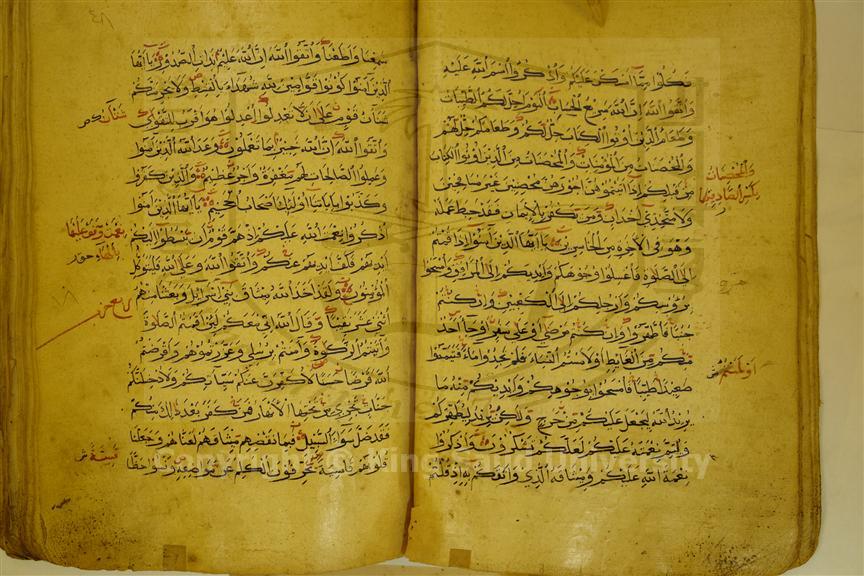 فكلوا مما امسكن عليكم واذكروا اسم الله عليه
واتقوا الله ان الله سريع الحساب اليوم احل لكم الطيبات
وطعام الذين اوتوا الكتاب حل لكم وطعامكم حل لهم
والمحصنات من المؤمنات والمحصنات من الذين اوتوا الكتاب
من قبلكم اذا اتيتموهن اجورهن محصنين غير مسافحين
ولا متخذي اخدان ومن يكفر بالايمان فقد حبط عمله
وهو في الاخرة من الخاسرين يا ايها الذين آمنوا اذا قمتم
الى الصلوة فاغسلوا وجوهكم وايديكم الى المرافق وامسحوا
برؤسكم وارجلكم الى الكعبين وان كنتم
جنبا فاطهروا وان كنتم مرضى او على سفر او جا احد
منكم من الغايط او لامستم النساء فلم تجدوا ماء فتيمموا
صعيدا طيبا فامسحوا بوجوهكم وايديكم منه ما
يريد الله ليجعل عليكم من حرج ولكن يريد ليطهركم
وليتم نعمته عليكم لعلكم تشكرون واذكروا
نعمة الله عليكم وميثاقه الذي واثقكم به اذ قلتم
والمحصنات
بكسر الصاد
او لمستم
سمعنا واطعنا واتقوا الله ان الله عليم بذات الصدور يا ايها
الذين آمنوا كونوا قوامين لله شهداء بالقسط ولا يجرمنكم
شنآن قوم على ان لا تعدلوا اعدلوا هو اقرب للتقوى
واتقوا الله ان الله خبير بما تعملون وعد الله الذين آمنوا
وعملوا الصالحات لهم مغفرة واجر عظيم والذين كفروا
وكذبوا باياتنا اولئك اصحاب الجحيم يا ايها الذين آمنوا
اذكروا نعمت الله عليكم اذ هم قوم ان يبسطوا اليكم
ايديهم فكف ايديهم عنكم واتقوا الله وعلى الله فليتوكل
المؤمنون ولقد اخذ الله ميثاق بني اسرائيل وبعثنا منهم
اثنى عشر نقيبا وقال الله اني معكم لئن اقمتم الصلوة
واتيتم الزكوة وامنتم برسلي وعزرتموهم واقرضتم
الله قرضا حسنا لاكفرن عنكم سيآتكم ولادخلنكم
جنات تجري من تحتها الانهار فمن كفر بعد ذلك منكم
فقد ضل سواء السبيل فبما نقضهم ميثاقهم لعناهم وجعلنا
قلوبهم قاسية يحرفون الكلم عن مواضعه ونسوا حظا
شنآن
نعمت
قسية
Copyright © King Saud University